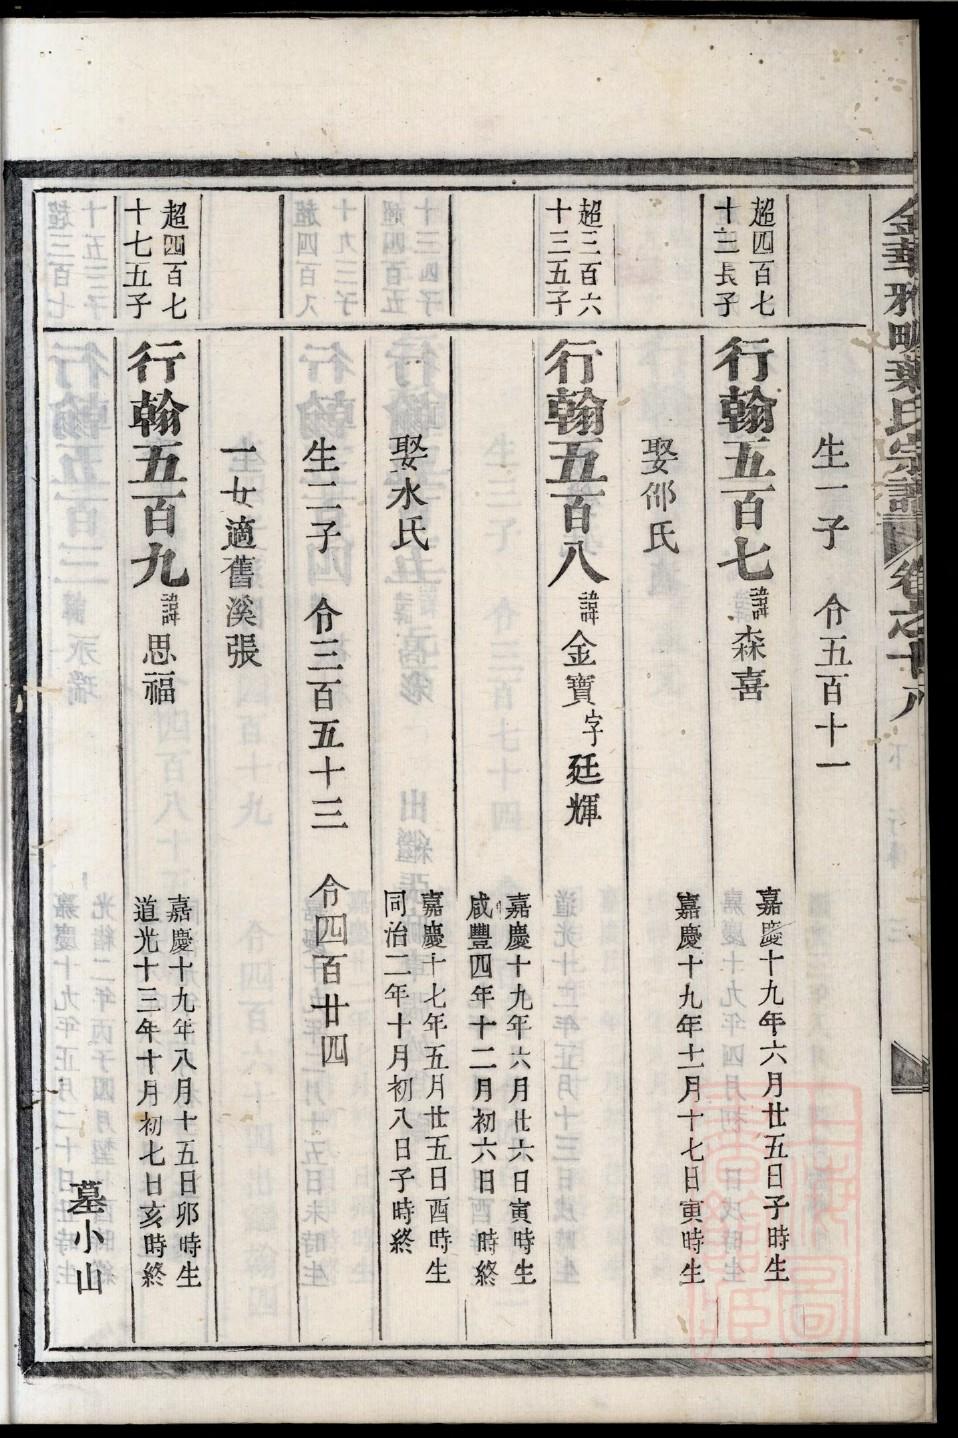 金華雅畈葉氏宗譜 卷之十八
生一子 令五百十一
超四百七
十三長子
行翰五百七 諱 森喜
嘉慶十九年六月廿五日子時生
娶邵氏
嘉慶十九年十一月十七日寅時生
超三百六
十三五子
行翰五百八 諱 金寶 字 廷輝
嘉慶十九年六月廿六日寅時生
咸豐四年十二月初六日 時終
娶水氏
嘉慶十七年五月廿五日酉時生
同治二年十月初八日子時終
生二子 令三百五十三 令四百廿四
一女適舊溪張
超四百七
十七五子
行翰五百九 諱 思福
嘉慶十九年八月十五日卯時生
道光十三年十月初七日亥時終
墓小山